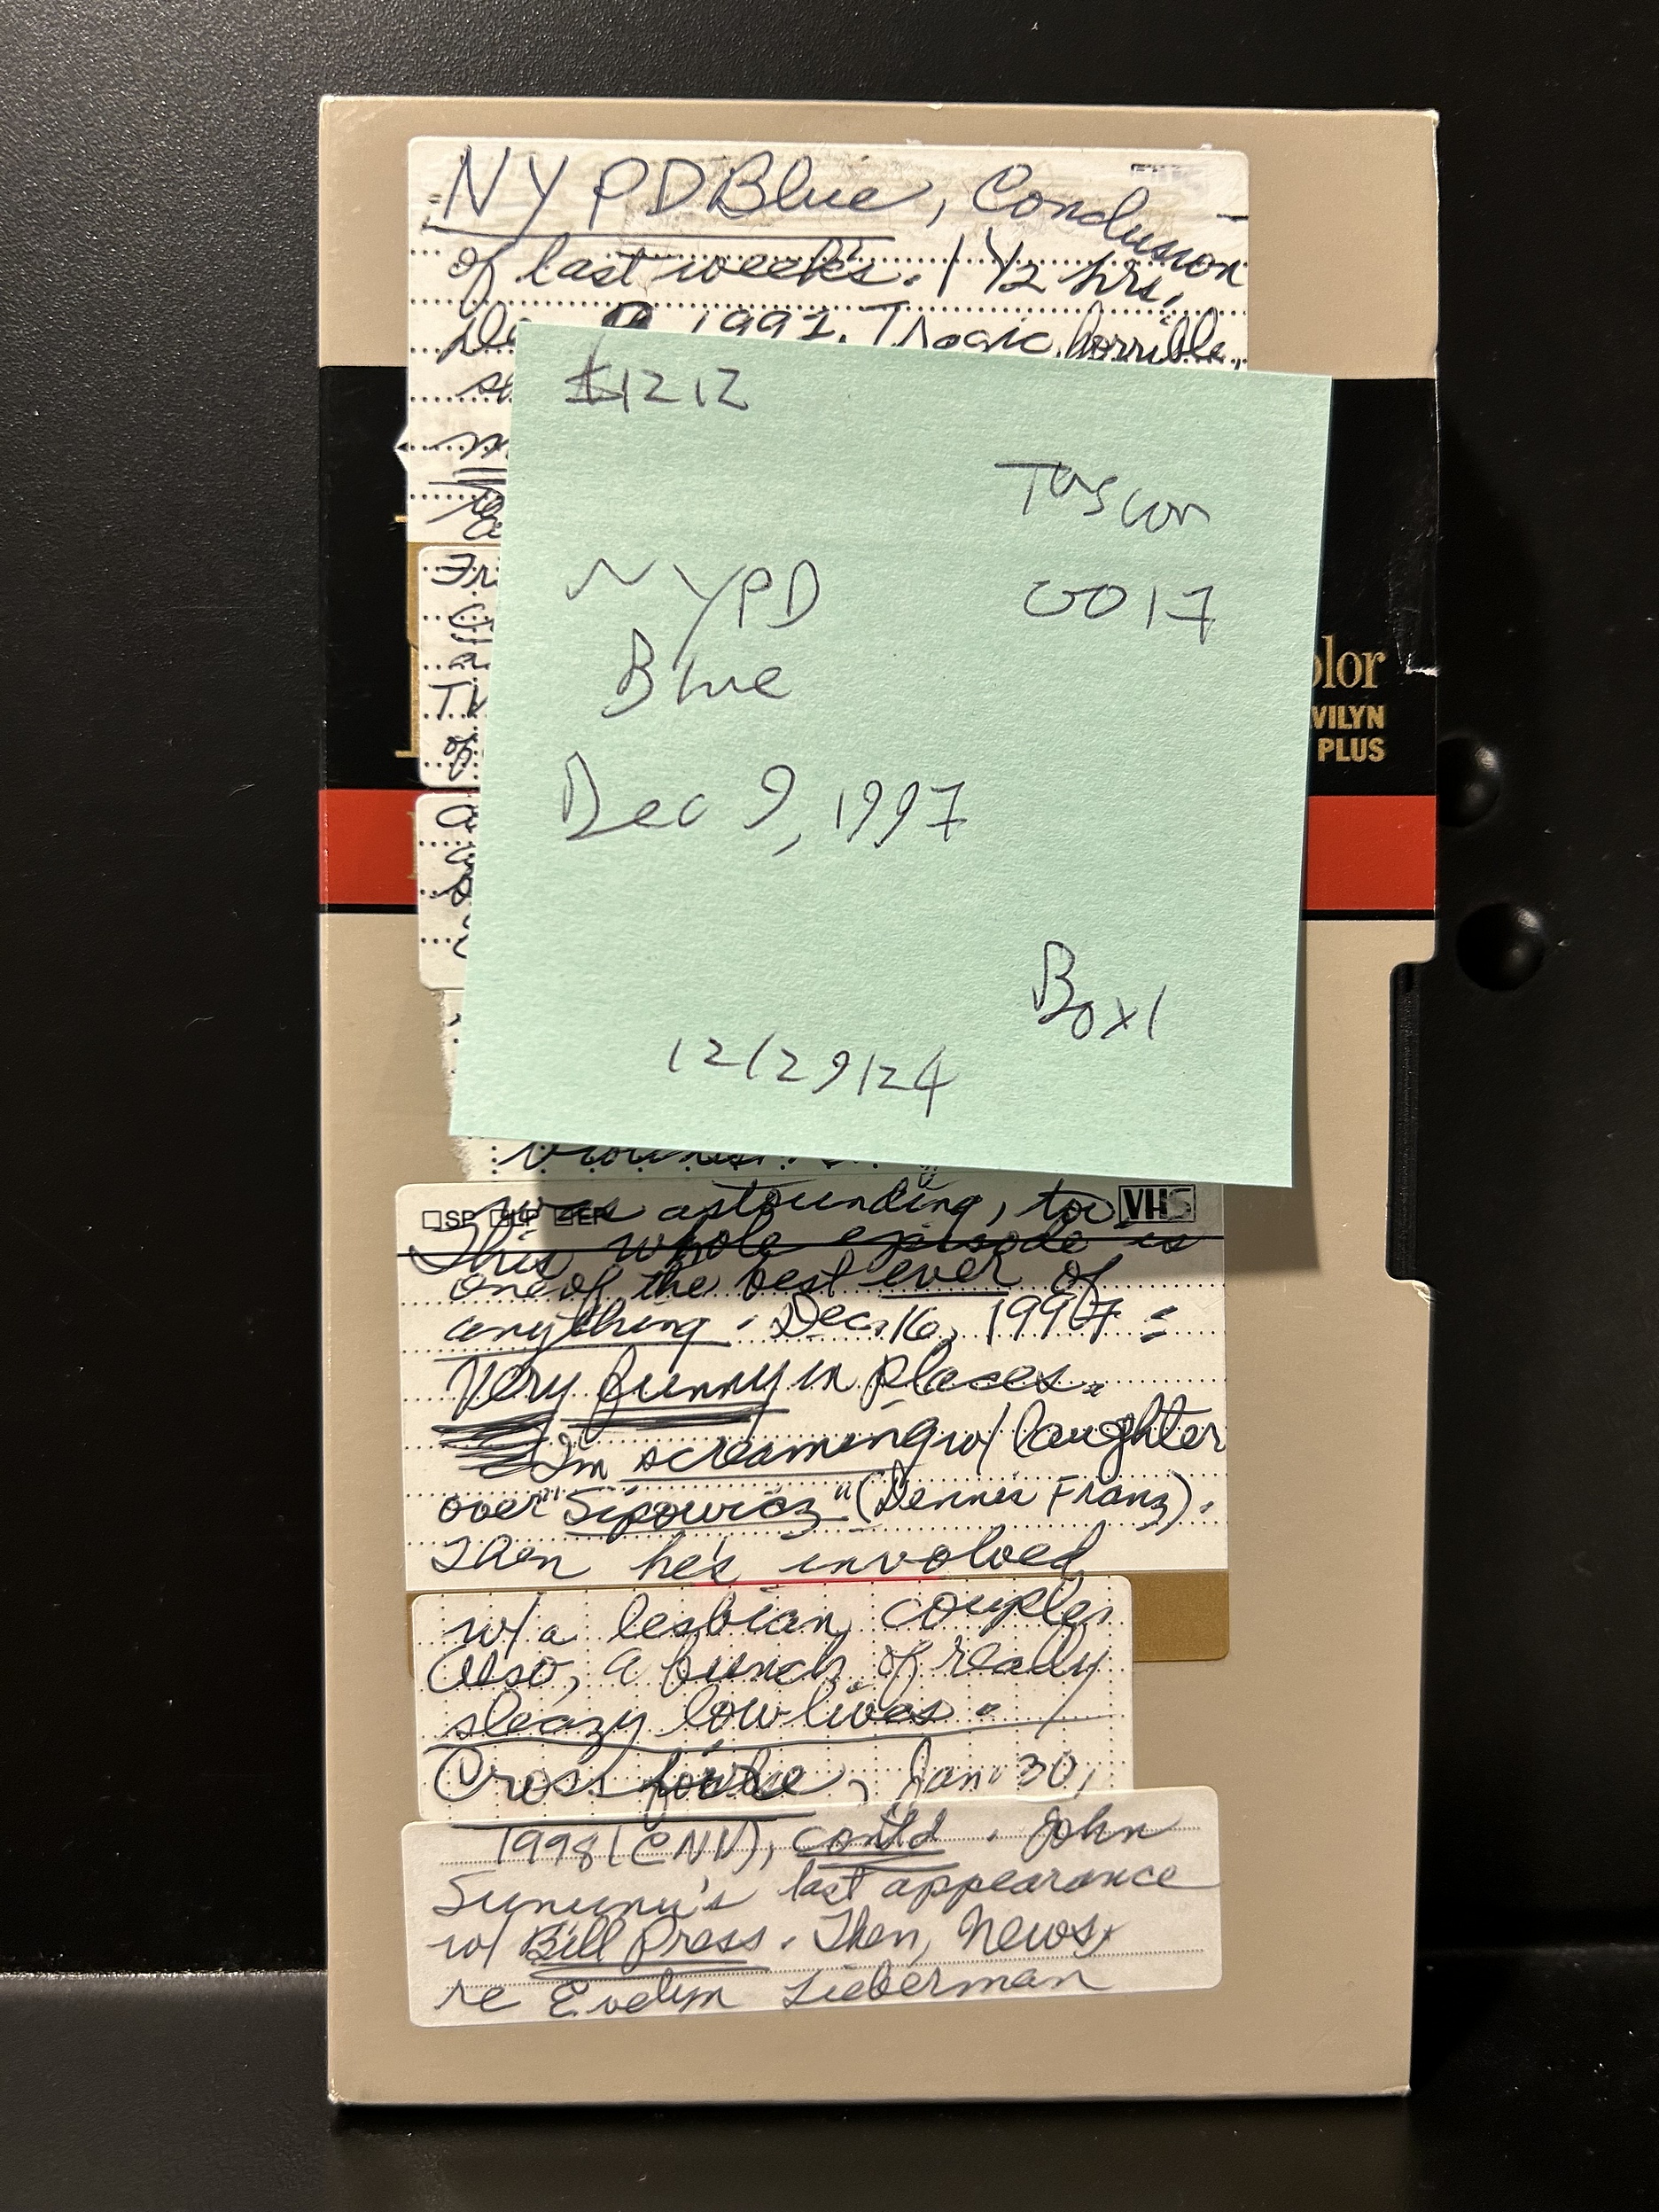 NYPD Blue, Conclusion
of last week's. 1 1/2 hrs.,
1997. Tragic, horrible,
$1212
Tuscon
0017
NYPD
Blue
Dec 9, 1997
Box 1
12/29/24
olor
VILYN
PLUS
Fr
of
SP LP EP
VHS
was astounding, too
This whole episode is
one of the best ever of
anything. Dec. 16, 1997:
Very funny in places.
I'm screaming w/ laughter
over "Sipowicz" (Dennis Franz).
Then he's involved
w/ a lesbian couple.
Also, a bunch of really
sleazy lowlives.
Crossfire, Jan. 30,
1998 (CNN), cont'd. John
Sununu's last appearance
w/ Bill Press. Then, News,
re Evelyn Lieberman